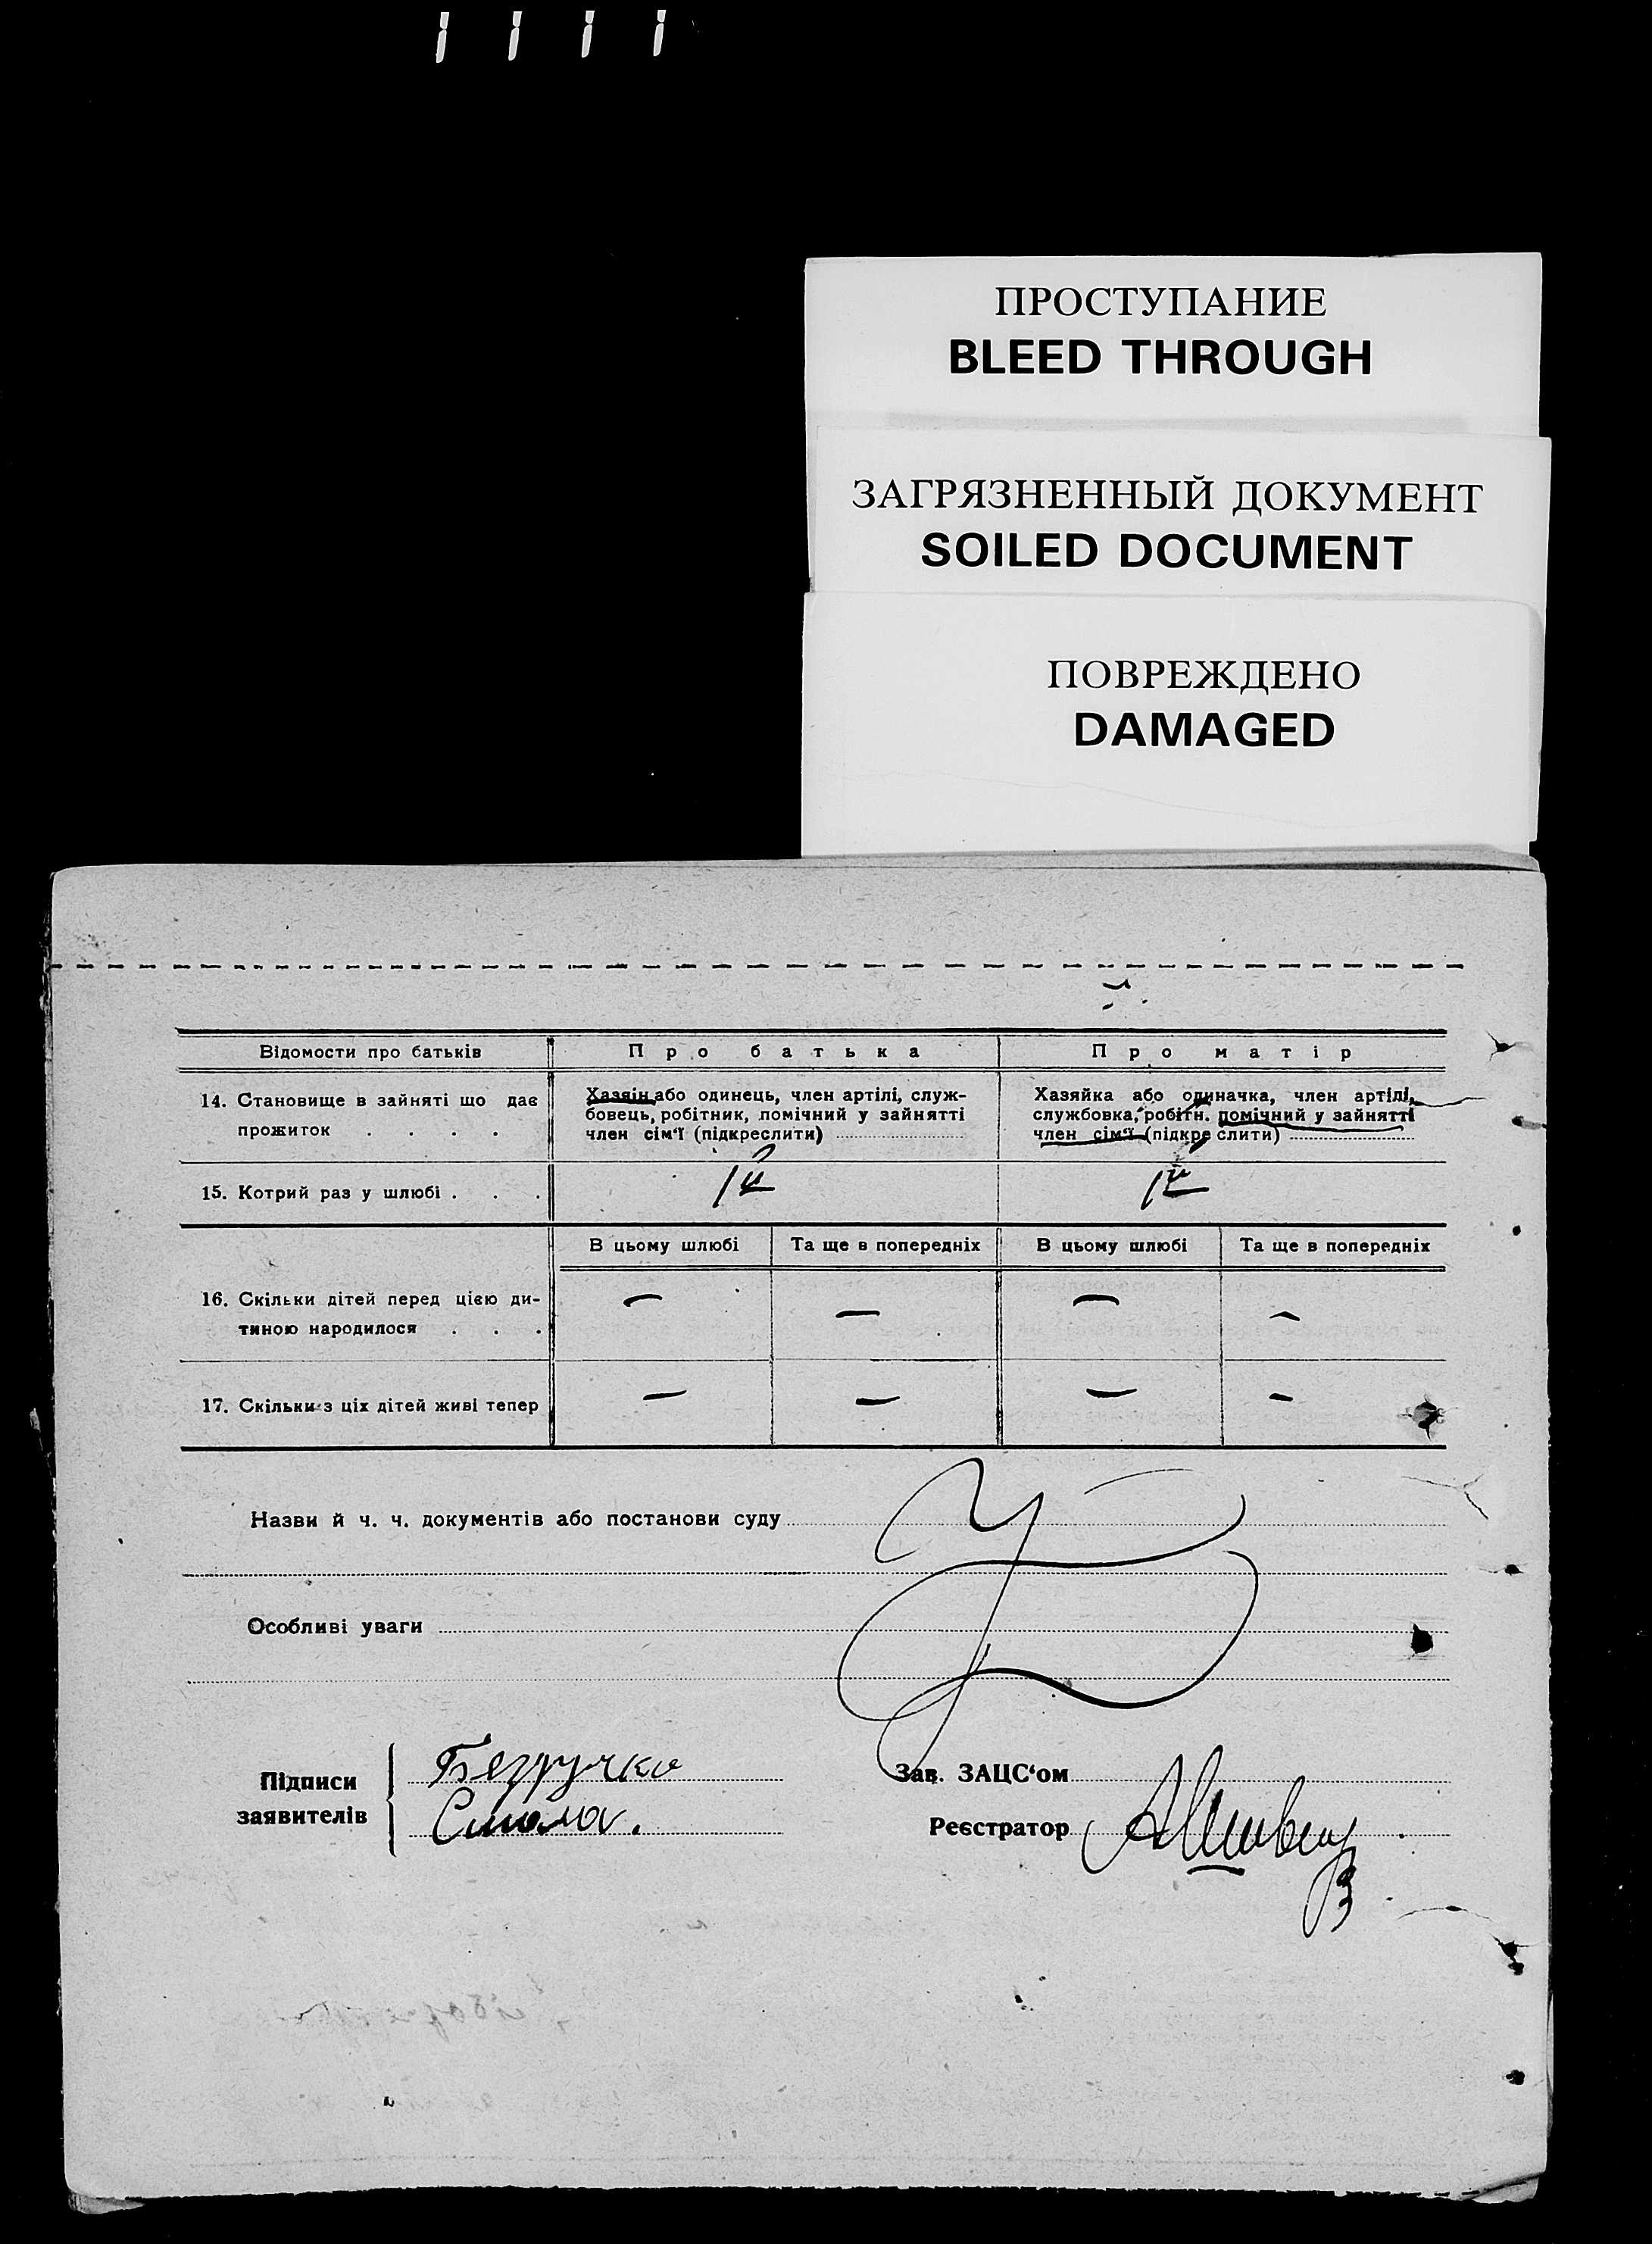 ПРОСТУПАНИЕ
BLEED THROUGH
ЗАГРЯЗНЕННЫЙ ДОКУМЕНТ
SOILED DOCUMENT
ПОВРЕЖДЕНО
DAMAGED
Відомости про батьків Про батька Про матір
14. Становище в зайняті що дає прожиток . . . .
Хазяін або одинець, член артілі, служ-
бовець, робітник, помічний у зайнятті
член сім'ї (підкреслити)
Хазяйка або одиначка, член артілі,
службовка, робітн. помічний у зайнятті
член сім'ї (підкреслити)
15. Котрий раз у шлюбі . . . 1й 1й
В цьому шлюбі Та ще в попередніх В цьому шлюбі Та ще в попередніх
16. Скільки дітей перед цією ди-
тиною народилося . . . — — — —
17. Скільки з ціх дітей живі тепер — — — —
Назви й ч. ч. документів або постанови суду
Особливі уваги
Підписи
заявителів
Безручко
Зав. ЗАЦС'ом
Реєстратор